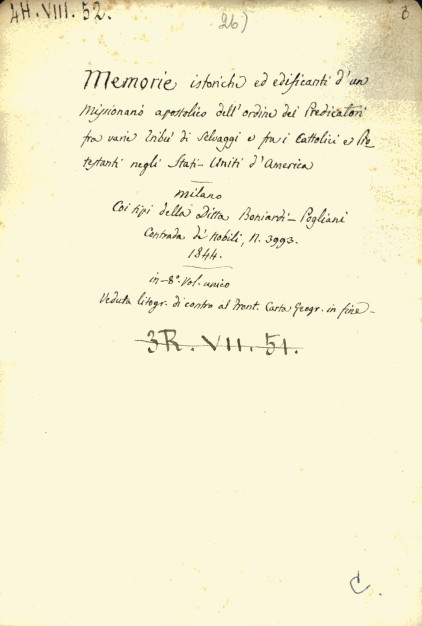 4H.VIII.52.
26)
Memorie istoriche ed edificanti d'un
Missionario apostolico dell'ordine dei Predicatori
fra varie Tribù di Selvaggi e fra i Cattolici e Pro_
testanti negli Stati-Uniti d'America
Milano
Coi tipi della Ditta Boniardi-Pogliani
Contrada de' Nobili, N. 3993.
1844.
in-8.° Vol. unico
Veduta litogr. di contro al Front. Carta Geogr. in fine-
3R.VII.51.
C.